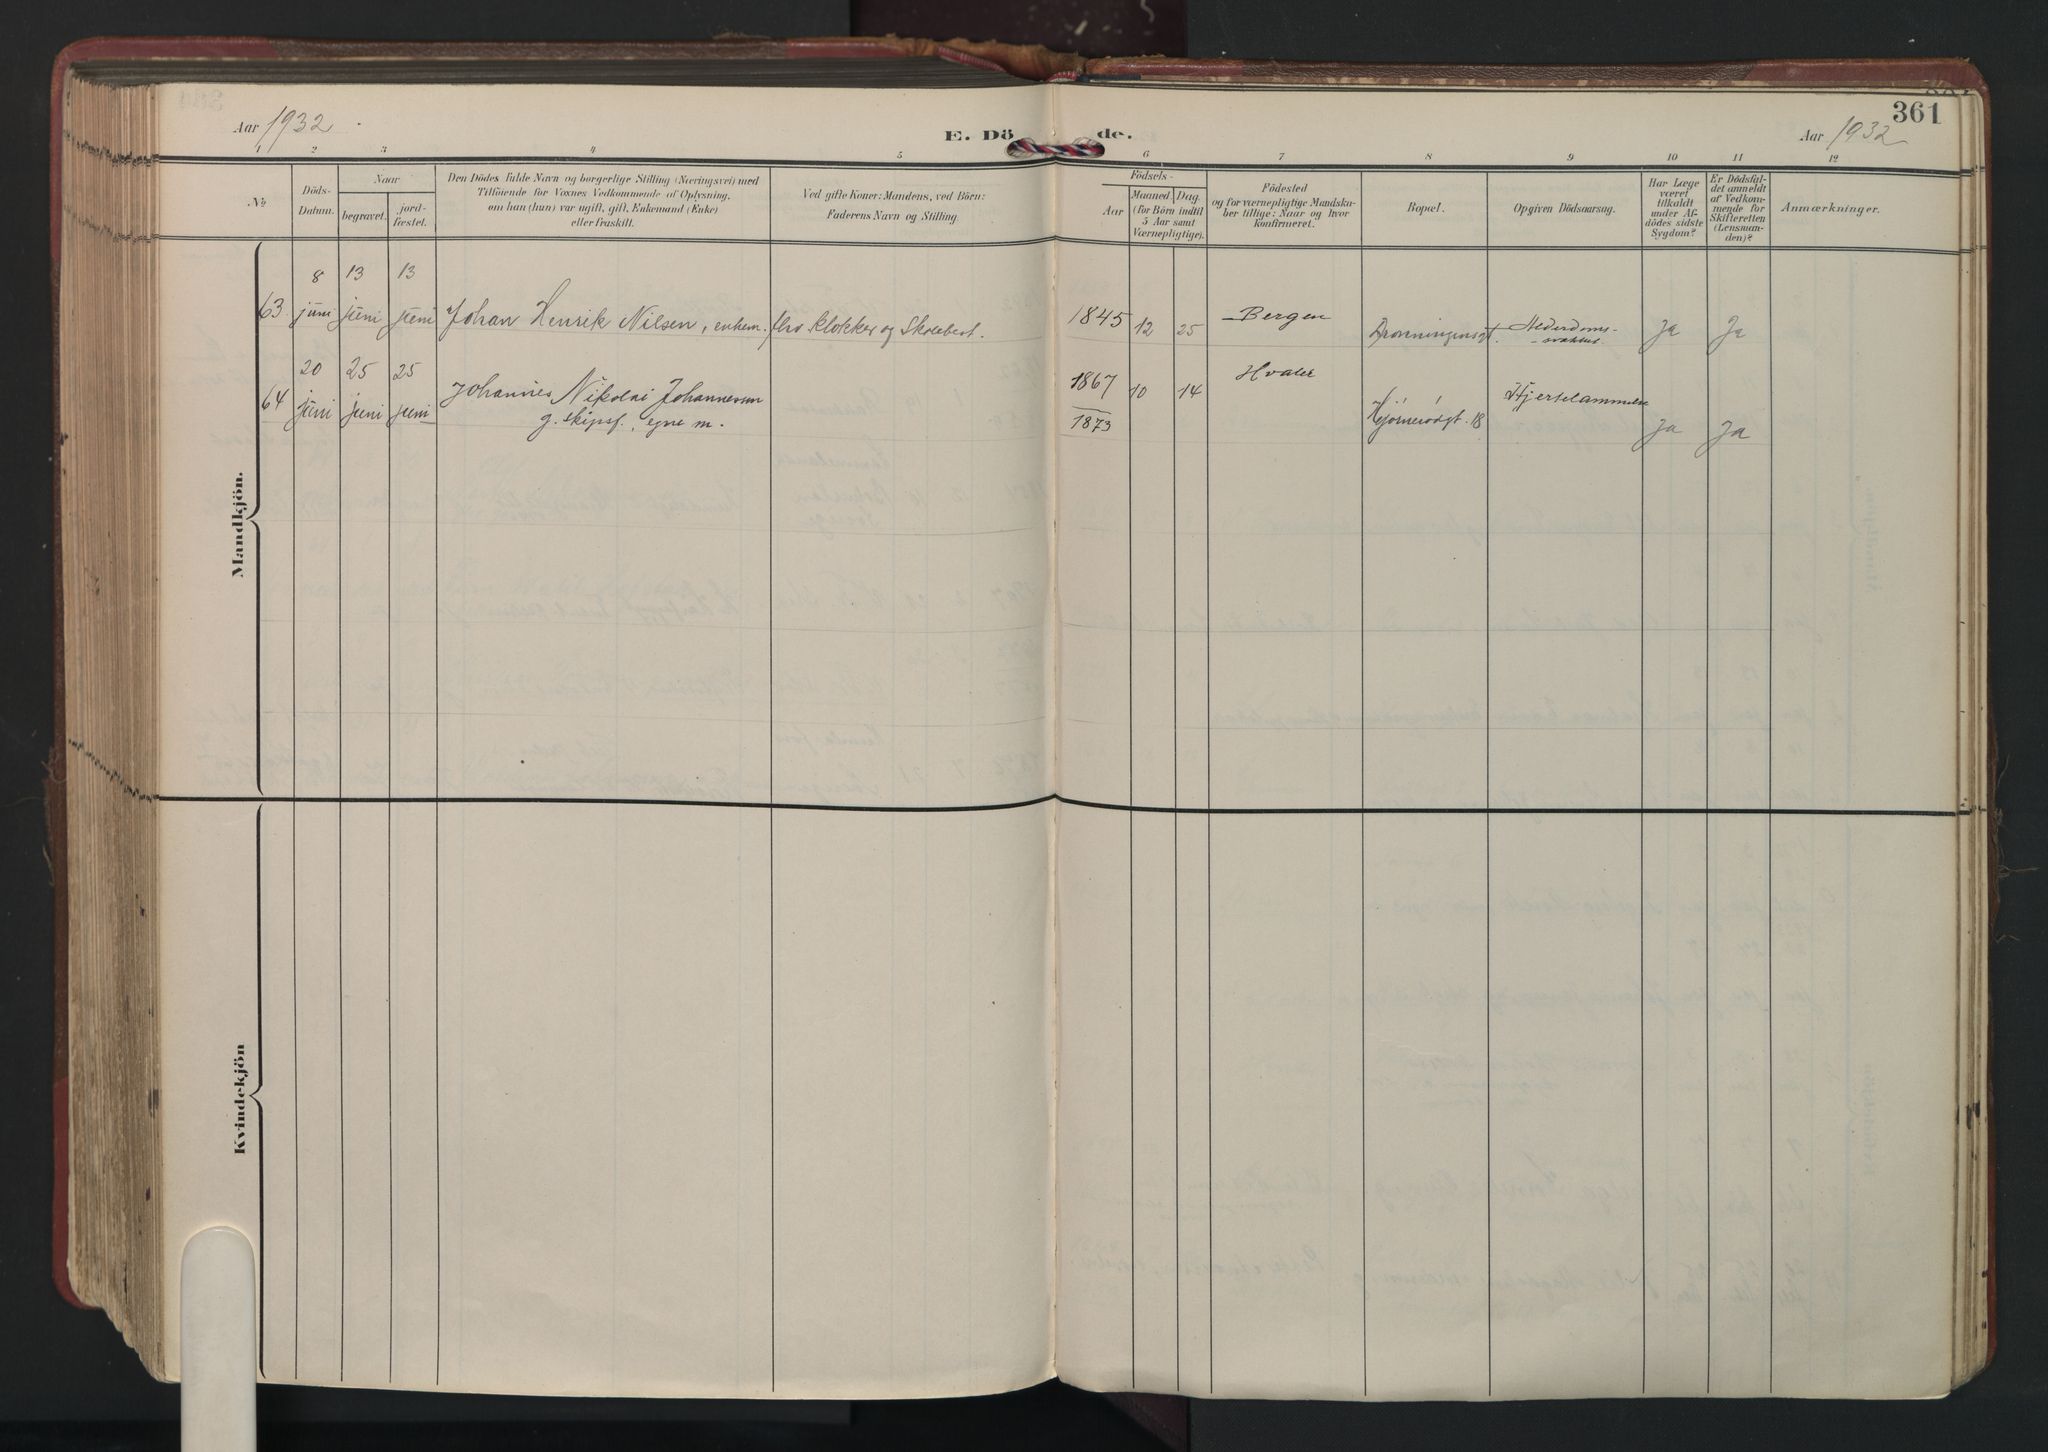 361
Aar 1932
E. Dö de.
Aar 1932
1 2 3 4 5 6 7 8 9 10 11 12
№
Döds-
Datum.
Naar
begravet.
jord-
fæstet.
Den Dödes fulde Navn og borgerlige Stilling (Næringsvei) med
Tilföiende for Voxnes Vedkommende af Oplysning,
om han (hun) var ugift, gift, Enkemand (Enke)
eller fraskilt.
Ved gifte Koner: Mandens, ved Börn:
Faderens Navn og Stilling.
Födsels-
Aar
Maaned
Dag.
(for Börn indtil
5 Aar samt
Værnepligtige).
Födested
og for værnepligtige Mandsku-
ber tillige: Naar og hvor
konfirmeret.
Bopæl.
Opgiven Dödsaarsag.
Har Læge
været
tilkaldt
under Af-
dödes sidste
Sygdom?
Er Dödsfal-
det anmeldt
af Vedkom-
mende for
Skifteretten
(Lensman-
den)?
Anmærkninger.
Mandkjön.
8 13 13
63. juni juni juni Johan Henrik Nilsen, enkem. fhv. klokker og Skolebest. 1845 12 25 Bergen Dronningensgt. Alderdoms-
svakhet. Ja Ja
20 25 25
64 juni juni juni Johannes Nikolai Johannessen 1867 10 14 Hvaler Hjertelammelse
g. skipsf., egne m. 1873 18 Ja Ja
Kvindekjön